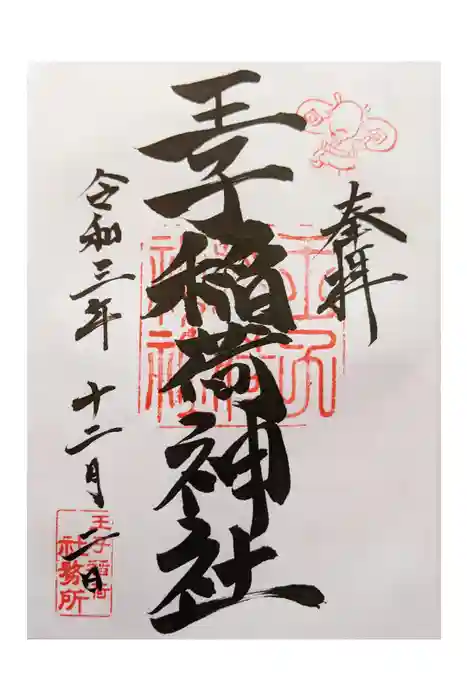 奉拝
王子稲荷神社
令和三年 十二月 二日
王子稲荷
社務所